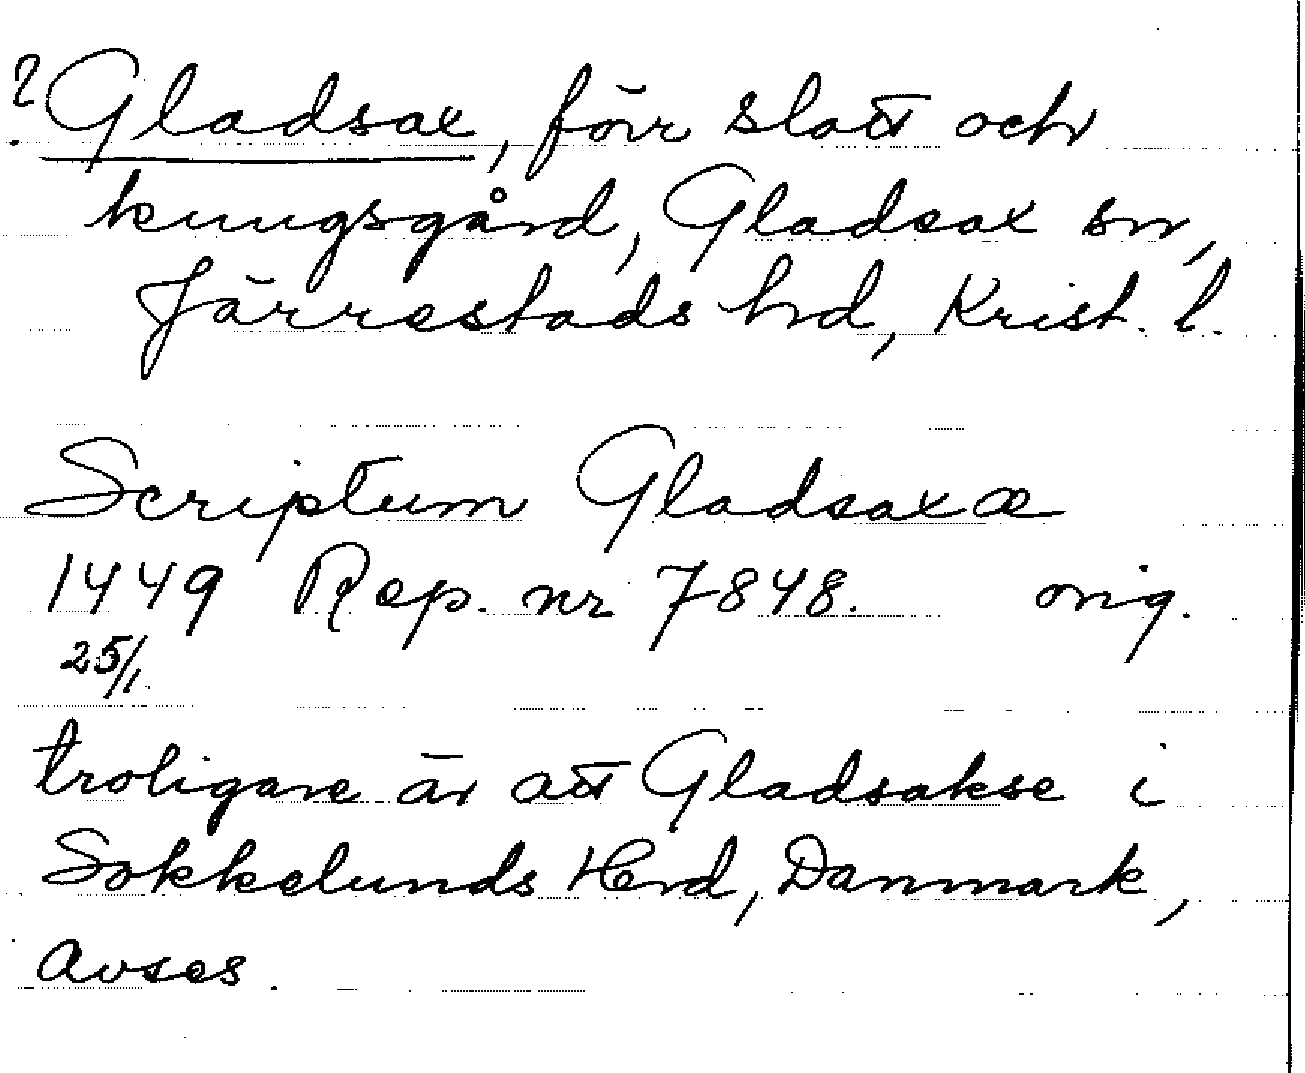 ? Gladsax, förr slott och
kungsgård, Gladsax sn,
Järrestads hd, Krist. l.
Scriptum Gladsaxæ
1449 Rep. nr 7848. orig.
25/1.
troligare är att Gladsakse i
Sokkelunds Herd, Danmark,
avses.